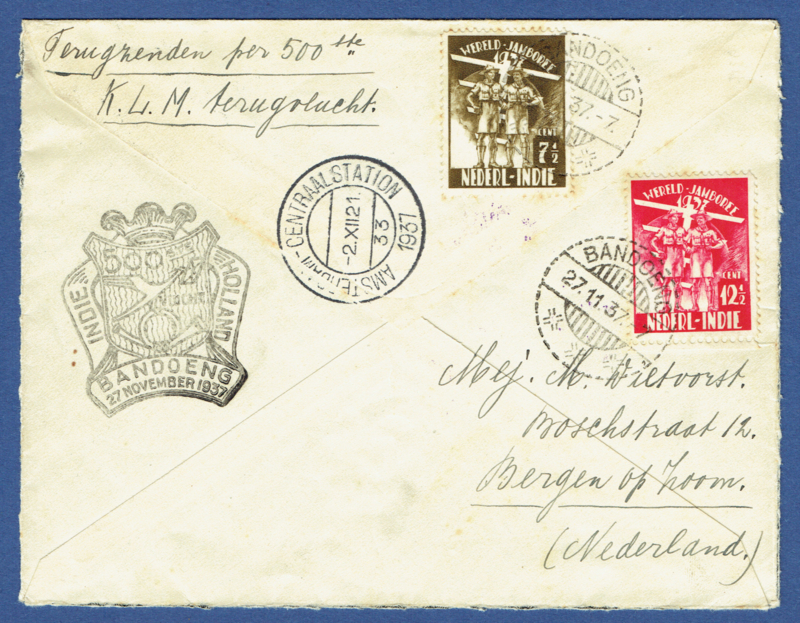 Terugzenden per 500ste
K.L.M. terugvlucht.
WERELD-JAMBOREE
1937
CENT
7½
NEDERL-INDIE
BANDOENG
37.-7.
CENTRAALSTATION
-2.XII21.
33
1937
AMSTERDAM
WERELD-JAMBOREE
1937
CENT
12½
NEDERL-INDIE
BANDOENG
27.11.37
500STE
VLUCHT
INDIE
HOLLAND
BANDOENG
27 NOVEMBER 1937
Mej. M. Wiltvorst.
Boschstraat 12.
Bergen op Zoom.
(Nederland.)